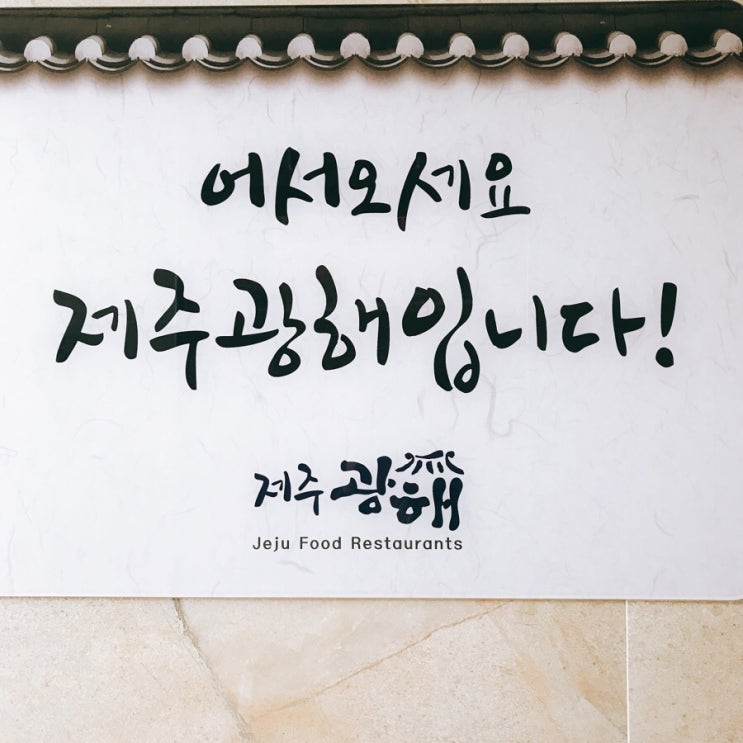 어서오세요
제주광해입니다!
제주 광해
Jeju Food Restaurants